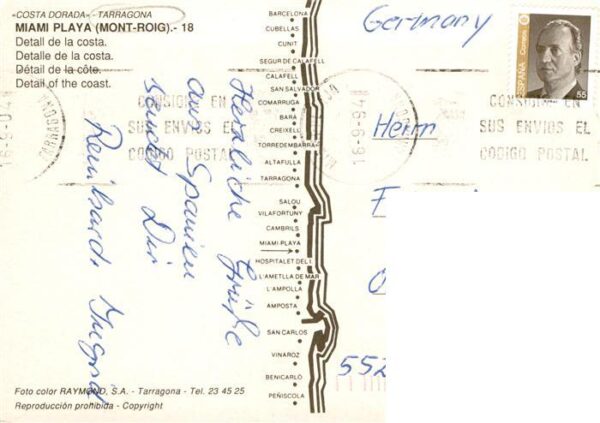 «COSTA DORADA» - TARRAGONA
MIAMI PLAYA (MONT-ROIG).- 18
Detall de la costa.
Detalle de la costa.
Détail de la côte.
Detail of the coast.
Herzliche Grüße
aus Spanien
sendet Dir
Reinhard. Ingrid
Foto color RAYMOND, S.A. - Tarragona - Tel. 23 45 25
Reproducción prohibida - Copyright
BARCELONA
CUBELLAS
CUNIT
SEGUR DE CALAFELL
CALAFELL
SAN SALVADOR
COMARRUGA
BARÁ
CREIXELL
TORREDEMBARRA
ALTAFULLA
TARRAGONA
SALOU
VILAFORTUNY
CAMBRILS
MIAMI-PLAYA
HOSPITALET DEL I.
L'AMETLLA DE MAR
L'AMPOLLA
AMPOSTA
SAN CARLOS
VINAROZ
BENICARLÓ
PEÑISCOLA
Germany
ESPAÑA
Correos
55
16-9-94
CONSIGNE EN
SUS ENVIOS EL
CODIGO POSTAL
16-9-94
CONSIGNE EN
SUS ENVIOS EL
CODIGO POSTAL
Herrn
F
O
552